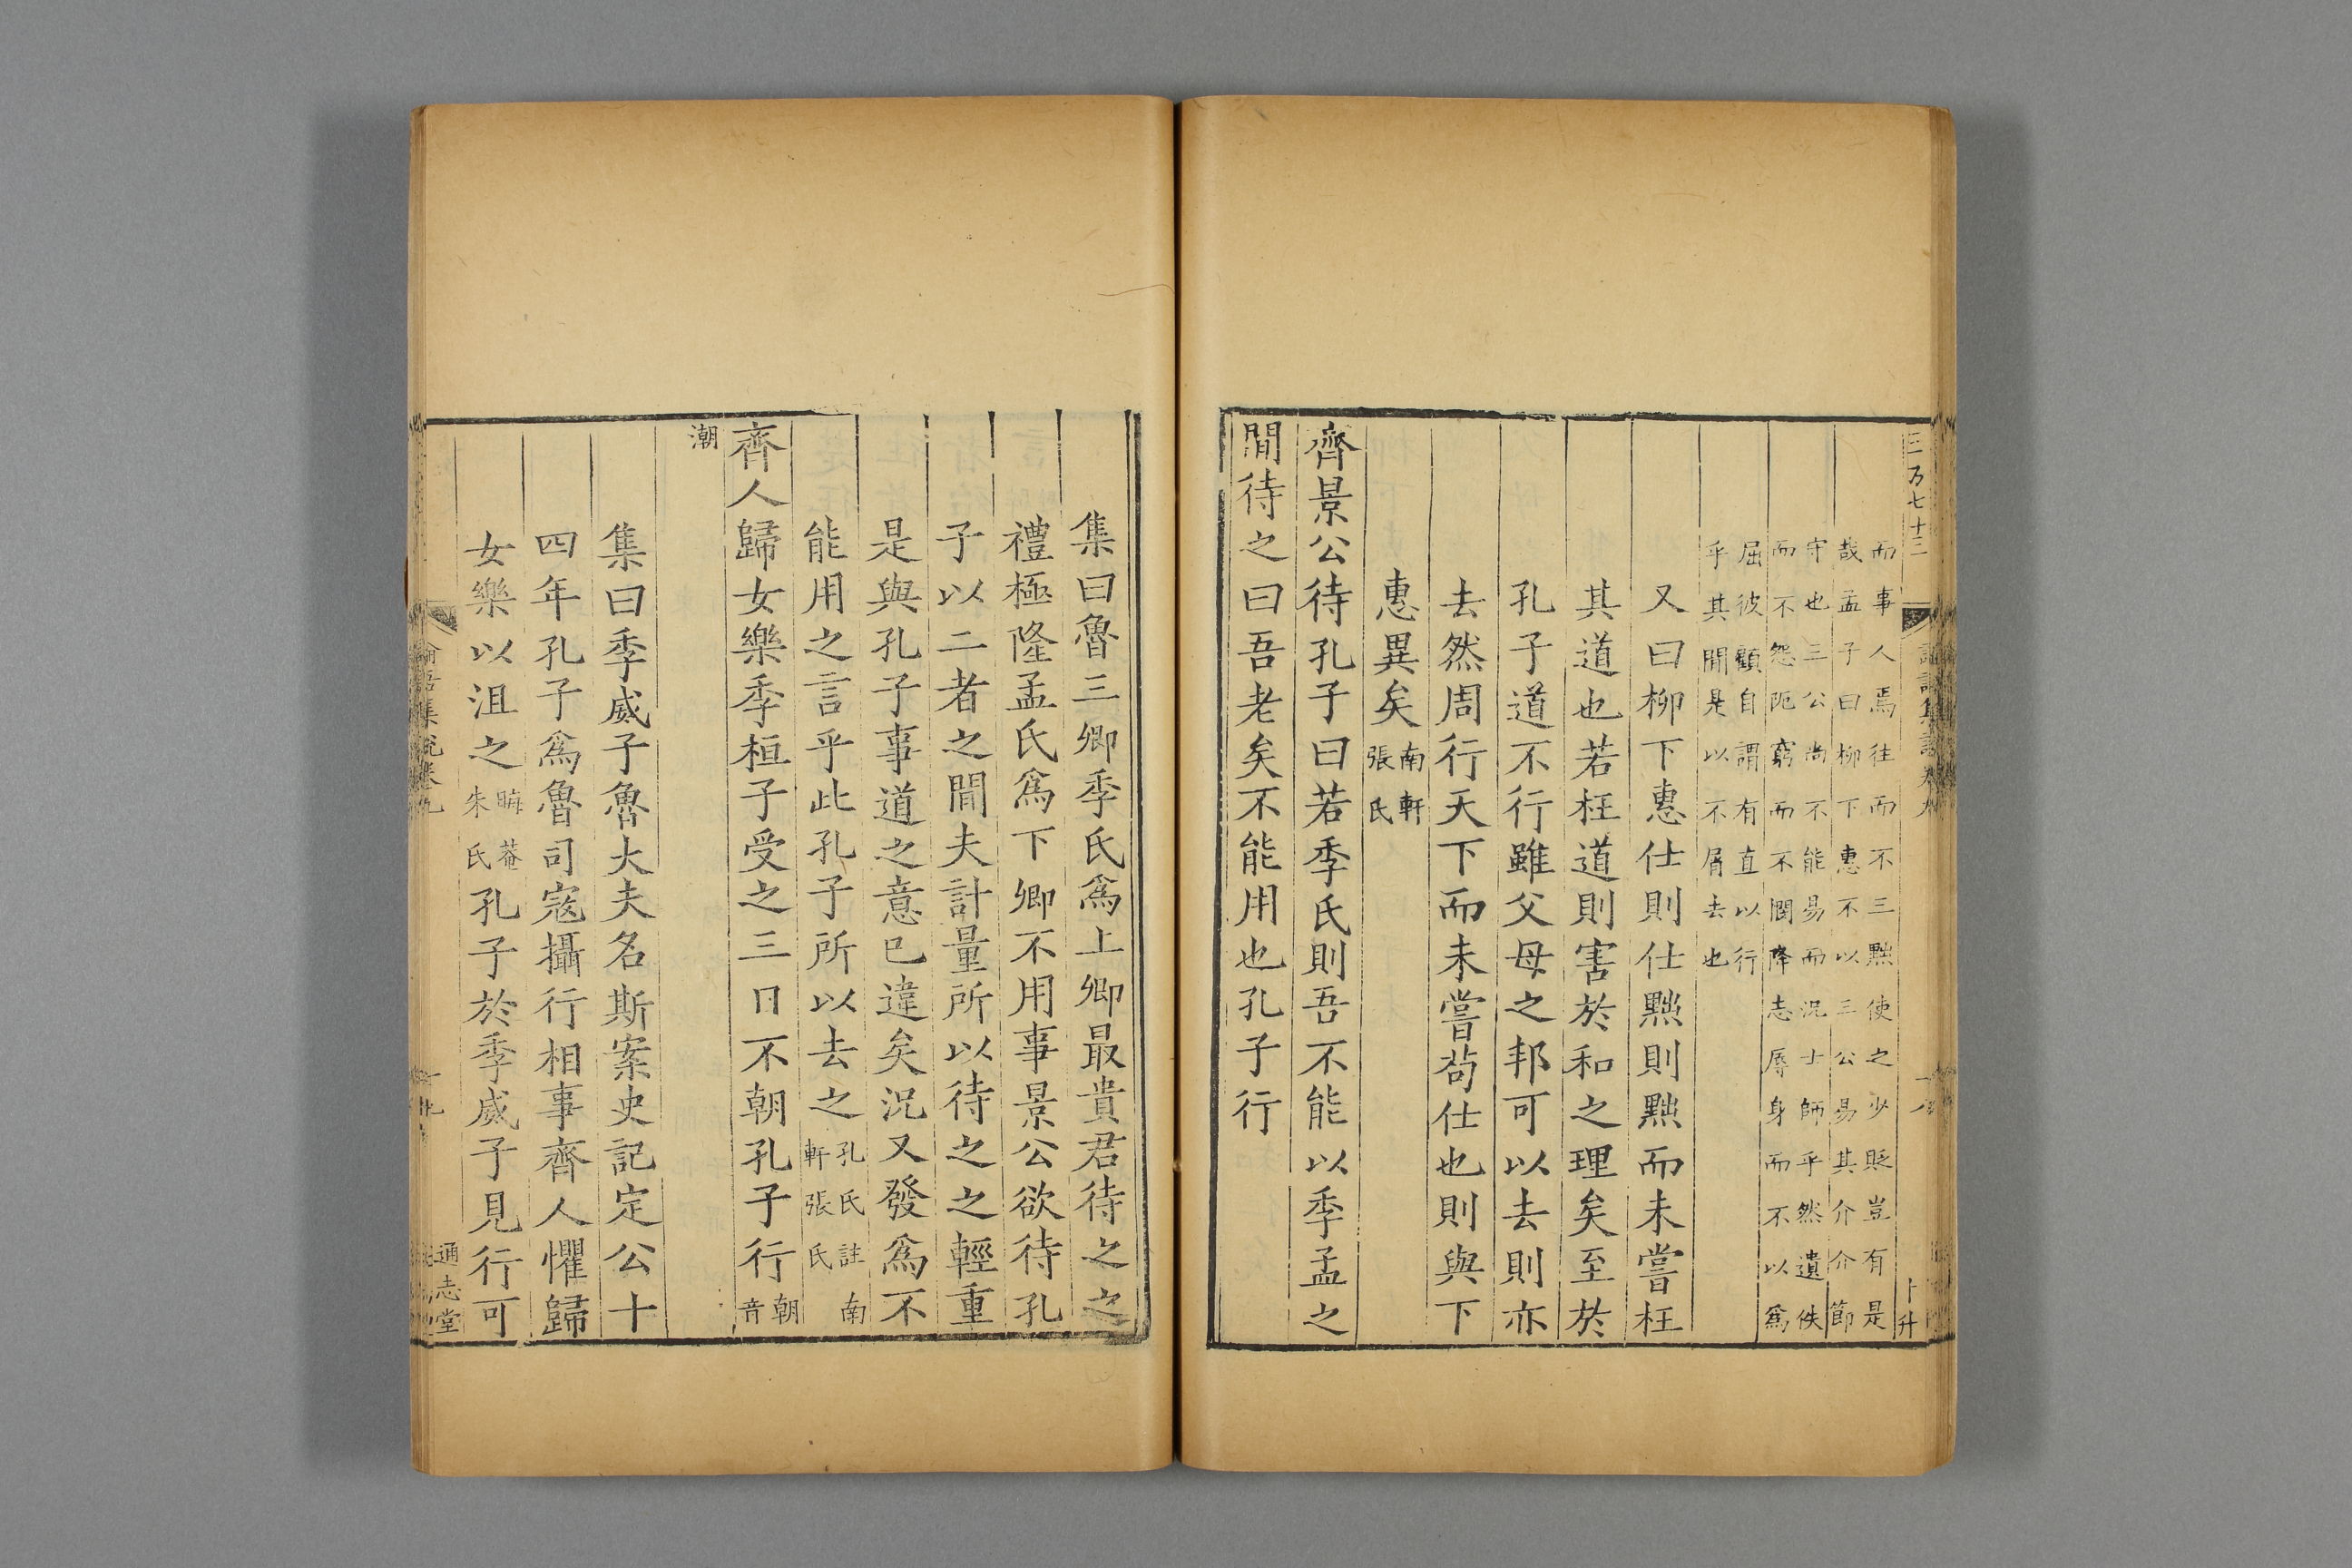 三百七十三
而事人焉往而不三黜使之少貶豈有是
哉孟子曰柳下惠不以三公易其介介節
守也三公尚不能易而況士師乎然遺佚
而不怨阨窮而不憫降志辱身而不以爲
屈彼顧自謂有直以行
乎其閒是以不屑去也
又曰柳下惠仕則仕黜則黜而未嘗枉
其道也若枉道則害於和之理矣至於
孔子道不行雖父母之邦可以去則亦
去然周行天下而未嘗茍仕也則與下
惠異矣南軒張氏
齊景公待孔子曰若季氏則吾不能以季孟之
閒待之曰吾老矣不能用也孔子行
集曰魯三卿季氏爲上卿最貴君待之之
禮極隆孟氏爲下卿不用事景公欲待孔
子以二者之閒夫計量所以待之之輕重
是與孔子事道之意已違矣況又發爲不
能用之言乎此孔子所以去之孔氏註南軒張氏
齊人歸女樂季桓子受之三日不朝孔子行朝音
潮
集曰季威子魯大夫名斯案史記定公十
四年孔子爲魯司寇攝行相事齊人懼歸
女樂以沮之晦菴朱氏孔子於季威子見行可
論語集說卷九
通志堂